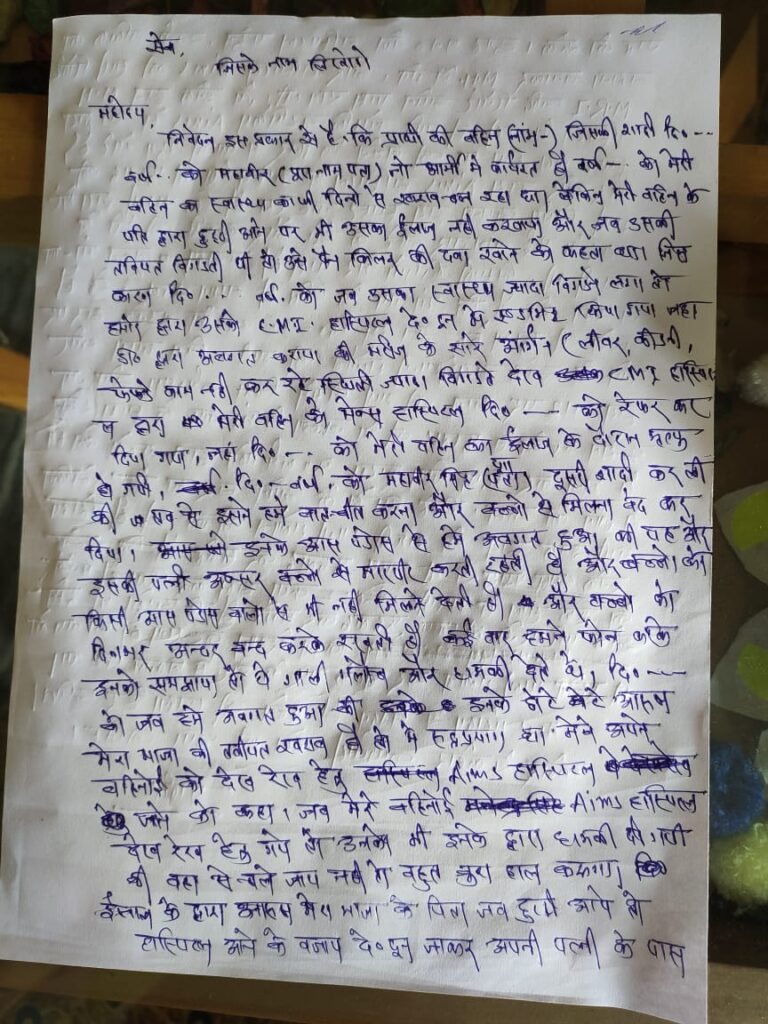 सेवा,
जिसके नाम लिखोगे
महोदय,
निवेदन इस प्रकार से है कि प्रार्थी की बहिन (नाम-) जिसकी शादी दि० ---
वर्ष -- को महावीर ( ) जो आर्मी मे कार्यरत है वर्ष -- को मेरी
बहिन का स्वास्थ्य काफी दिनो से खराब चल रहा था। लेकिन मेरी बहिन के
पति द्वारा छुट्टी आने पर भी उसका ईलाज नही करवाया और जब उसकी
तबियत बिगडती थी तो उसे पेन किलर की दवा खाने को कहता था। जिस
कारण दि० -- वर्ष -- को जब उसका स्वास्थ्य ज्यादा बिगडने लगा तो
हमारे द्वारा उसको C.M.I. हास्पिटल दे०दून मे एडमिट किया गया जहा
डा० द्वारा अवगत कराया की मरीज के सारे आर्गन (लीवर, कीडनी,
काम नही कर रहे स्थिती ज्यादा बिगडते देख CMI हास्पिटल
द्वारा मेरी बहिन को मेक्स हास्पिटल दि० --- को रेफर कर
दिया गया, जहा दि० -- को मेरी बहिन का ईलाज के दौरान मृत्यु
हो गयी, दि० -- वर्ष -- को महावीर सिंह दूसरी शादी कर ली
की तब से इसने हमे बात-चीत करना और बच्चो से मिलना बंद कर
दिया। इनके आस पडोस से हमे अवगत हुआ की यह और
इसकी पत्नी अक्सर बच्चो से मारपीट करती रहती है और बच्चो को
किसी आस पडोस वालो से भी नही मिलने देती है। और बच्चो को
दिनभर अन्दर बन्द करके रखती है। कई बार हमने फोन करके
इनको समझाया तो ये गाली गलोच और धमकी देते थे, दि० ---
को जब हमे अवगत हुआ की इनके छोटे बेटे आरुष
मेरा भांजा की तबीयत खराब है तो मे रुद्रप्रयाग था मेने अपने
बहिनोई को देख रेख हेतु Aims हास्पिटल
जाने को कहा, जब मेरे बहिनोई Aims हास्पिटल
देख रेख हेतु गये तो उनको भी इनके द्वारा धमकी दी गयी
की यहा से चले जाय नही तो बहुत बुरा हाल करूगा।
ईलाज के द्वारा आरुष मेरा भांजा के पिता जब छुट्टी आये तो
हास्पिटल आने के बजाय दे०दून जाकर अपनी पत्नी के पास